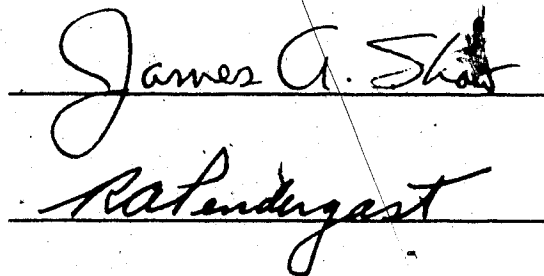 James A. Shaw
RA Pendergast